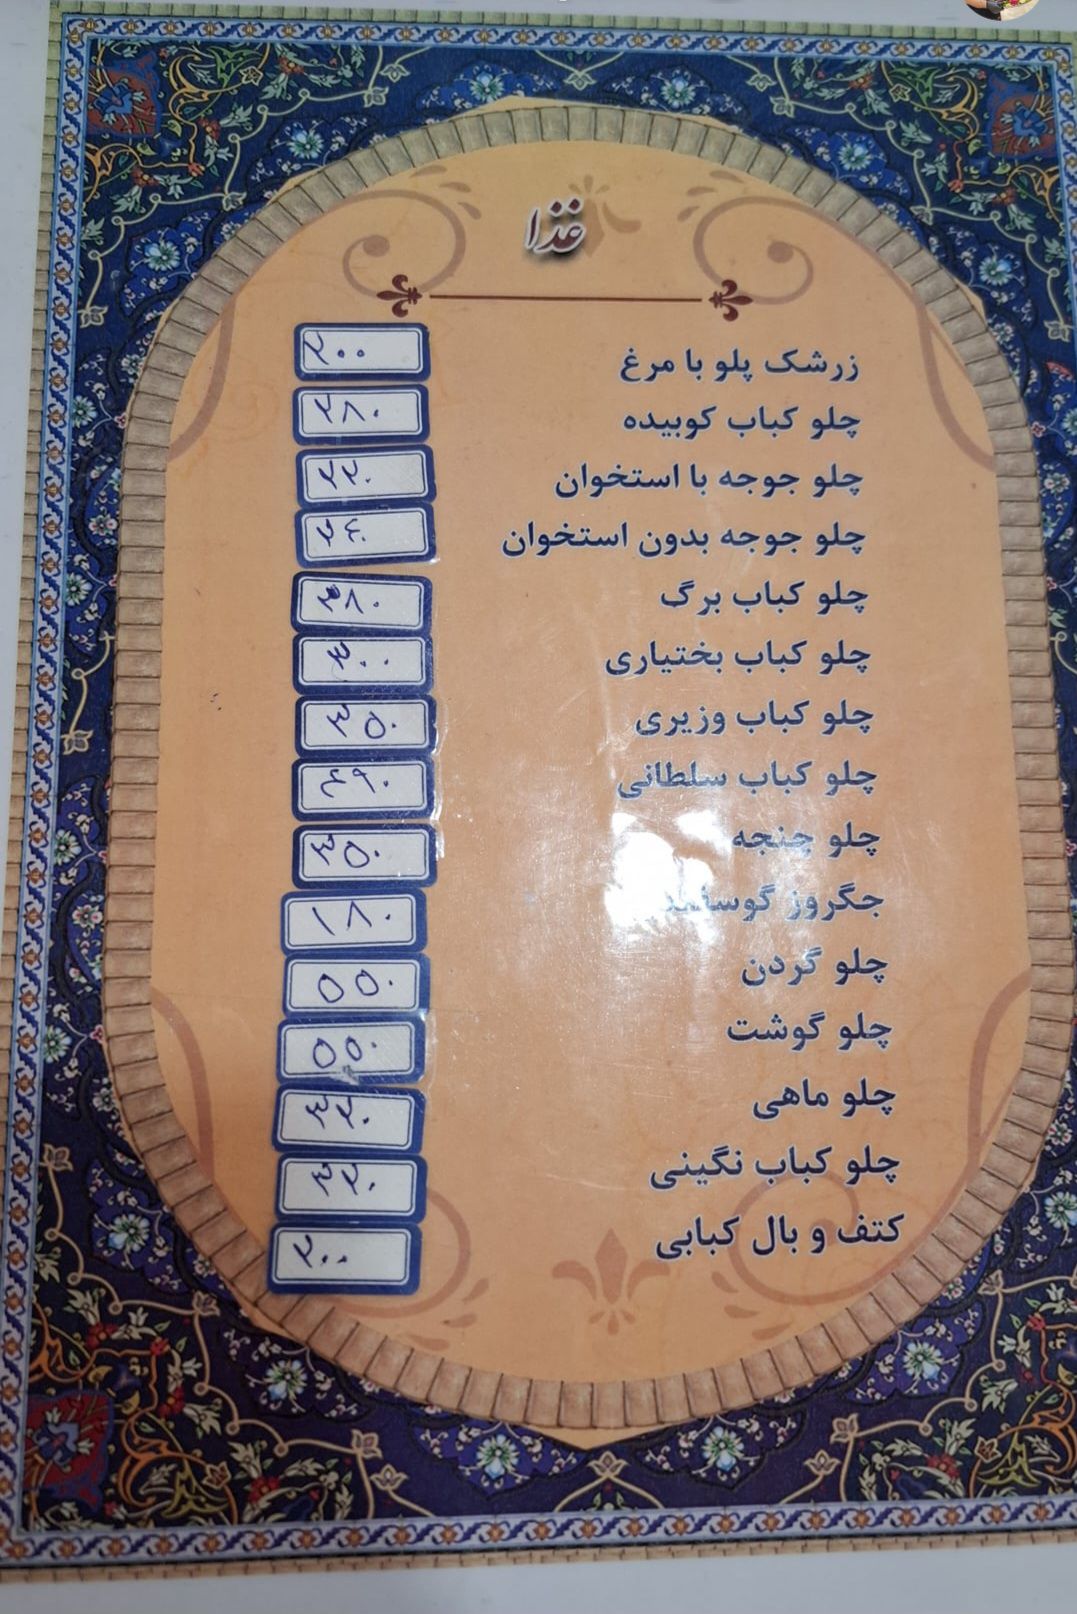 غذا
زرشک پلو با مرغ ۲۰۰
چلو کباب کوبیده ۲۸۰
چلو جوجه با استخوان ۲۲۰
چلو جوجه بدون استخوان ۲۴۰
چلو کباب برگ ۳۸۰
چلو کباب بختیاری ۳۰۰
چلو کباب وزیری ۳۵۰
چلو کباب سلطانی ۴۹۰
چلو چنجه ۳۵۰
جگروز گوسفند ۱۸۰
چلو گردن ۵۵۰
چلو گوشت ۵۵۰
چلو ماهی ۳۲۰
چلو کباب نگینی ۳۲۰
کتف و بال کبابی ۲۰۰